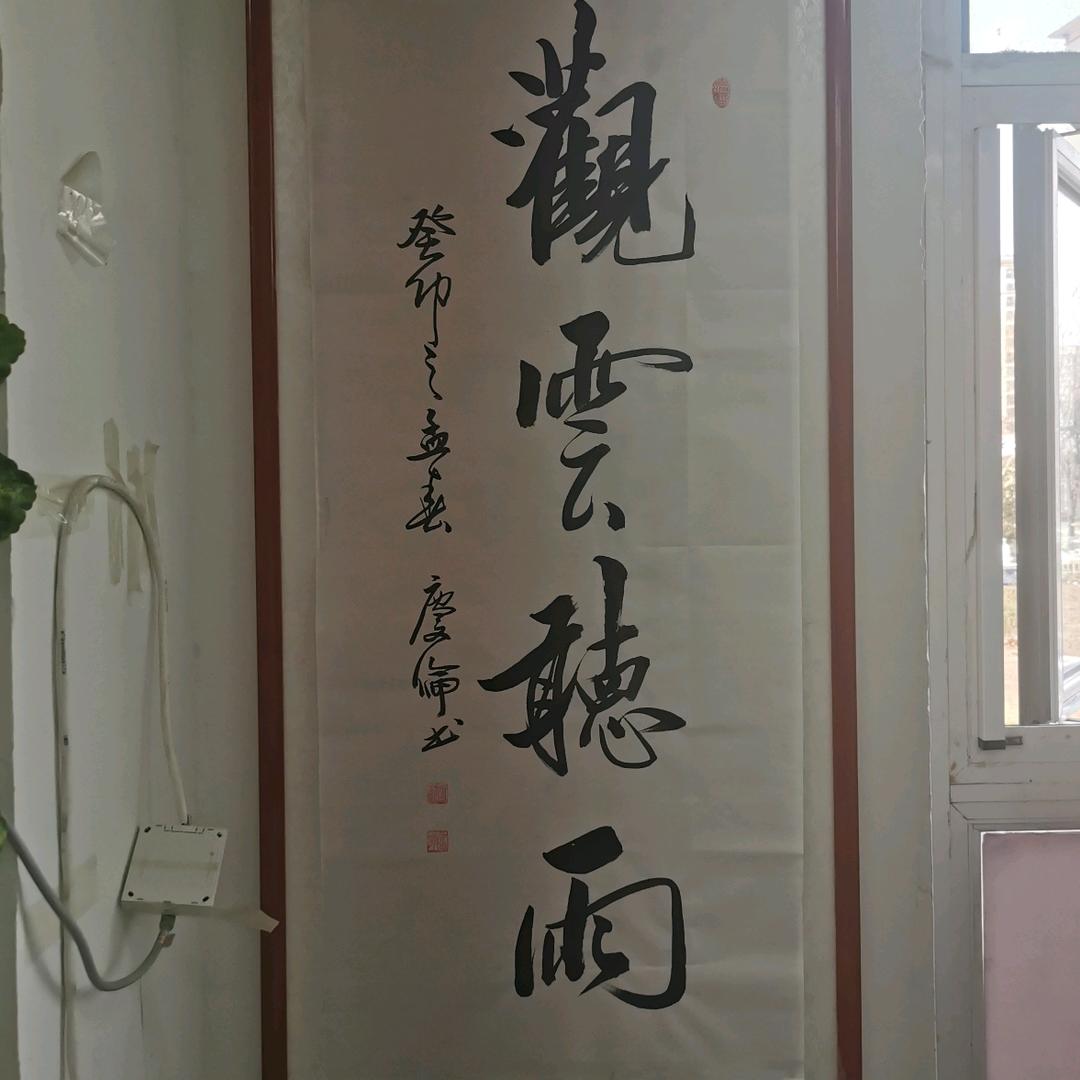 觀雲聽雨
癸卯之孟春 慶倫书